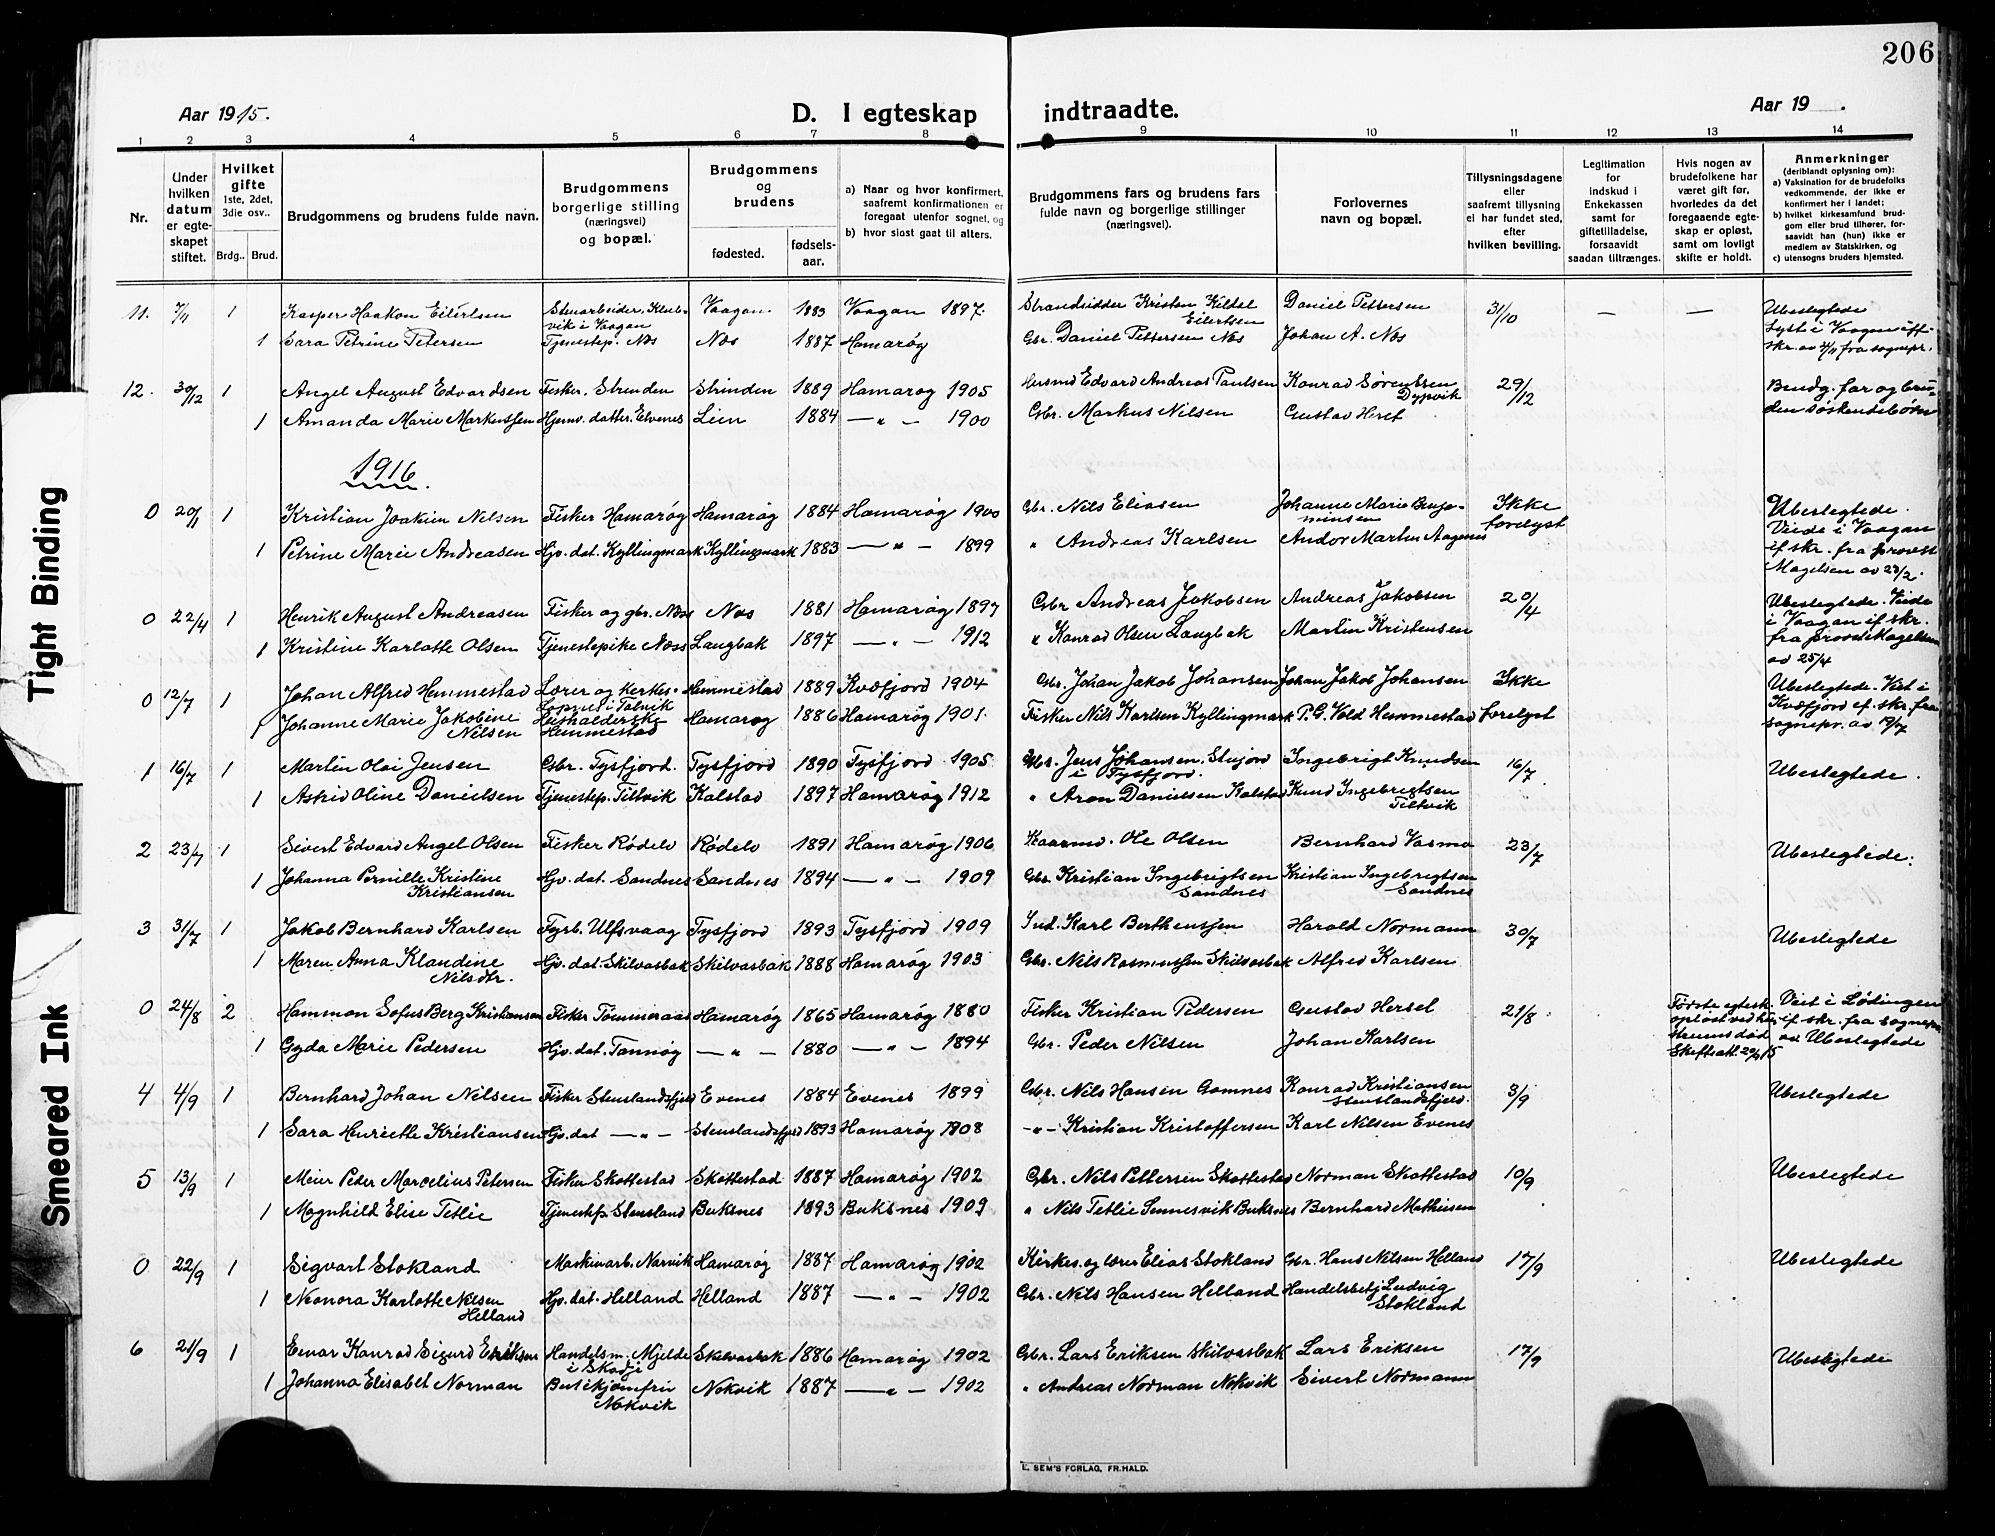 206
Aar 1915.
D. I egteskap
indtraadte.
Aar 19 .
1 2 3 4 5 6 7 8 9 10 11 12 13 14
Nr.
Under hvilken datum er egteskapet stiftet.
Hvilket gifte 1ste, 2det, 3die osv..
Brdg.. Brud.
Brudgommens og brudens fulde navn.
Brudgommens borgerlige stilling (næringsvei) og bopæl.
Brudgommens og brudens
fødested.
fødselsaar.
a) Naar og hvor konfirmert, saafremt konfirmationen er foregaat utenfor sognet, og
b) hvor sidst gaat til alters.
Brudgommens fars og brudens fars fulde navn og borgerlige stillinger (næringsvei).
Forlovernes navn og bopæl.
Tillysningsdagene eller saafremt tillysning ei har fundet sted, efter hvilken bevilling.
Legitimation for indskud i Enkekassen samt for giftetilladelse, forsaavidt saadan tiltrænges.
Hvis nogen av brudefolkene har været gift før, hvorledes da det foregaaende egteskap er opløst, samt om lovligt skifte er holdt.
Anmerkninger (deriblandt oplysning om):
a) Vaksination for de brudefolks vedkommende, der ikke er konfirmert her i landet;
b) hvilket kirkesamfund brudgom eller brud tilhører, forsaavidt han (hun) ikke er medlem av Statskirken, og
c) utensogns bruders hjemsted.
11. 7/11 1 Kasper Haakon Eilertsen Stenarbeider, vik i Vaagan Vaagan. 1883 Vaagan 1897. Strandsidder Kristen Keldal Eilertsen Daniel Pettersen 31/10 — — Ubeslegtede
1 Sara Petrine Petersen Tjenestep. Næs Næs 1887 Hamarøy Gbr. Daniel Pettersen Næs Johan A. Næs Lyst i Vaagan fra sognepr.
12. 30/12 1 Angel August Edvardsen Fisker, Strinden Strinden 1889 Hamarøy 1905 Edvard Andreas Paulsen Konrad Sørensen Dypvik 29/12 Brudg. far og bruden søskendebørn
1 Amanda Marie Markussen Hjemv. datter. Elvenes Lien 1884 — „ — 1900 Gbr. Markus Nilsen Gustav Hersel
1916.
0 20/1 1 Kristian Joakim Nilsen Fisker Hamarøy Hamarøy 1884 Hamarøy 1900 Gbr. Nils Eliasen Johanne Marie Benjaminsen Ikke forelyst Ubeslegtede. Viede i Vaagan if skr. fra provst Magelsen av 23/2.
1 Petrine Marie Andreasen Hjv. dat. Kyllingmark Kyllingmark 1883 — „ — 1899 „ Andreas Karlsen Andor Martin Aagenes
0 22/4 1 Henrik August Andreasen Fisker og gbr. Næss Næs 1881 Hamarøy 1897 Gbr Andreas Jakobsen Andreas Jakobsen 20/4 Ubeslegtede. Viede i Vaagan if skr. fra provst Magelsen av 25/4
1 Kristine Karlotte Olsen Tjenestepike Næss Langbak 1897 — „ — 1912 „ Konrad Olsen Langbak Martin Kristensen
0 12/7 1 Johan Alfred Hemmestad Lærer og kirkes. i Talvik Hemmestad 1889 Kvæfjord 1904 Gbr. Johan Jakob Johansen Johan Jakob Johansen Ikke Ubeslegtede. Viet i Kvæfjord if. skr. fra sognepr. av 19/7
1 Johanne Marie Jakobine Nilsen Husholderske Hemmestad Hamarøy 1886 Hamarøy 1901. Fisker Nils Karlsen Kyllingmark P. G. Vold Hemmestad forelyst
1 16/7 1 Martin Olai Jensen Gbr. Tysfjord. Tysfjord 1890 Tysfjord 1905 Gbr. Jens Johansen, i Tysfjord. Ingebrigt Knudsen 16/7 Ubeslegtede.
1 Astrid Oline Danielsen Tjenestep. Tiltvik Kalstad 1897 Hamarøy 1912 „ Aron Danielsen Kalstad Knud Ingebrigtsen Tiltvik
2 23/7 1 Sivert Edvard Angel Olsen Fisker Rødelv Rødelv 1891 Hamarøy 1906 Kaarmd. Ole Olsen Bernhard Vasmo 23/7 Ubeslegtede.
1 Johanna Pernille Kristine Kristiansen Hjv. dat. Sandnes Sandnes 1894 — „ — 1909 Gbr. Kristian Ingebrigtsen Sandnes Kristian Ingebrigtsen Sandnes
3 31/7 1 Jakob Bernhard Karlsen Fyrb. Ulfsvaag Tysfjord 1893 Tysfjord 1909 Ind. Karl Berthenssen Harald Normann 30/7 Ubeslegtede
1 Maren Anna Klaudine Nilsdtr. Hjv. dat. Skilvasbak Skilvasbak 1888 Hamarøy 1903 Gbr. Nils Rasmussen Skilvasbak Alfred Karlsen
0 24/8 2 Hammon Sofus Berg Kristiansen Fisker Tømmeraas Hamarøy 1865 Hamarøy 1880 Fisker Kristian Pedersen Gustav Hersel 21/8 Første egtesk. opløst ved hustruens død Skifteatt. 20/4 15 Viet i Lødingen if skr. fra sognepr. av Ubeslegtede
1 Gyda Marie Pedersen Hjv. dat. Tannøy — „ — 1880 — „ — 1894 Gbr. Peder Nilsen Johan Karlsen
4 4/9 1 Bernhard Johan Nilsen Fisker Stenslandsfjeld Evenes 1884 Evenes 1899 Gbr. Nils Hansen Gamnes Konrad Kristiansen Stenslandsfjeld. 3/9 Ubeslegtede
1 Sara Henriette Kristiansen Hjv. dat — „ — Stenslandsfjeld 1893 Hamarøy 1908 — „ — Kristian Kristoffersen Karl Nilsen Evenes
5 13/9 1 Meier Peder Marcelius Petersen Fisker Skottestad Skottestad 1887 Hamarøy 1902 Gbr. Nils Pettersen Skottestad Norman Skottestad 10/9 Ubeslegtede
1 Magnhild Elise Tetlie Tjenestep. Stensland Buksnes 1893 Buksnes 1909 „ Nils Tetlie Sennesvik Buksnes Bernhard Mathisen
0 22/9 1 Sigvart Stokland Maskinarb. Narvik Hamarøy 1887 Hamarøy 1902 Kirkes. og lærer Elias Stokland Gbr. Hans Nilsen Helland 17/9 Ubeslegtede
1 Neonora Karlotte Nilsen Helland Hjv. dat. Helland Helland 1887 — „ — 1902 Gbr. Nils Hansen Helland Handelsbetj. Ludvig Stokland
6 21/9 1 Einar Konrad Sigurd Eriksen Handelsm. Mjelde i Skodje Skilvasbak 1886 Hamarøy 1902 Gbr. Lars Eriksen Skilvasbak Lars Eriksen 17/9 Ubeslegtede
1 Johanna Elisabet Norman Butikjomfru Nokvik Nokvik 1887 — „ — 1902 „ Andreas Norman Nokvik Sivert Normann
E. SEM'S FORLAG, FR.HALD.
Tight Binding
Smeared Ink